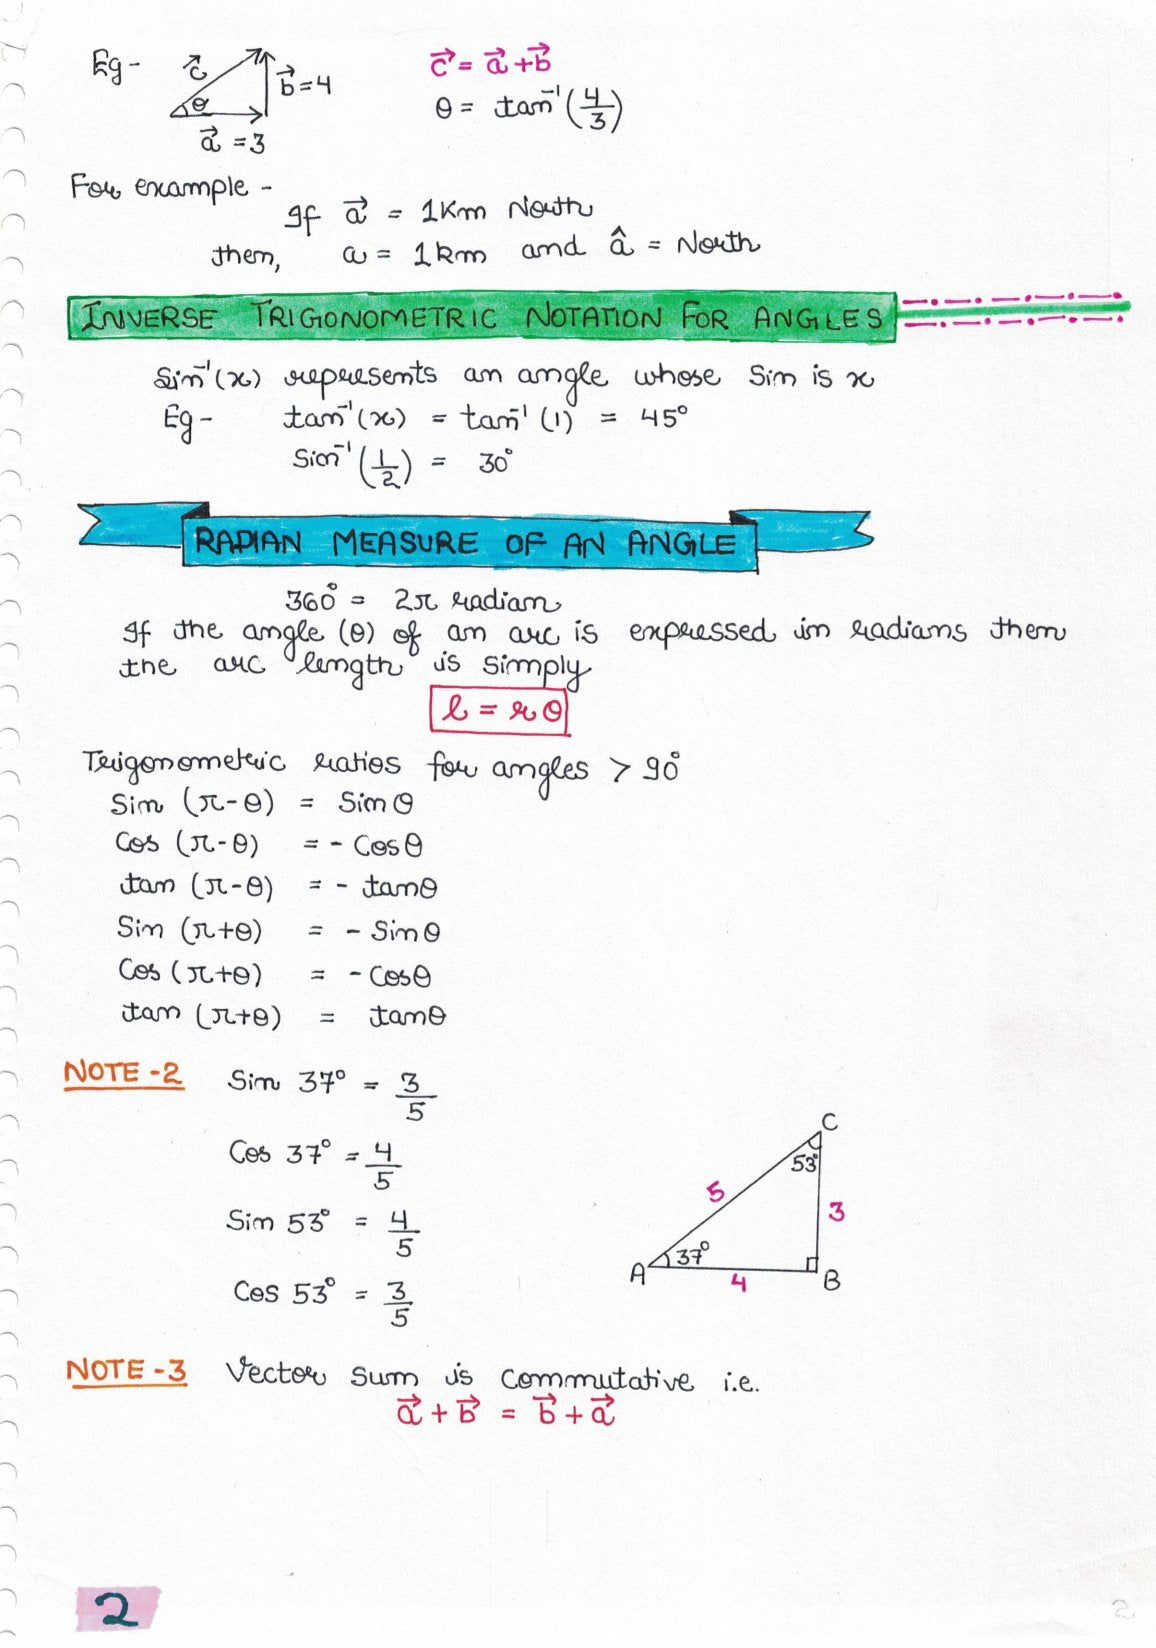 Eg - c⃗ θ b⃗ = 4 a⃗ = 3
c⃗ = a⃗ + b⃗
θ = tan⁻¹(4/3)
For example -
If a⃗ = 1Km North
then, a = 1km and â = North
INVERSE TRIGONOMETRIC NOTATION FOR ANGLES
Sin⁻¹(x) represents an angle whose Sin is x
Eg - tan⁻¹(x) = tan⁻¹(1) = 45°
Sin⁻¹(1/2) = 30°
RADIAN MEASURE OF AN ANGLE
360° = 2π radian
If the angle (θ) of an arc is expressed in radians then
the arc length is simply
l = rθ
Trigonometric ratios for angles > 90°
Sin (π-θ) = Sinθ
Cos (π-θ) = - Cosθ
tan (π-θ) = - tanθ
Sin (π+θ) = - Sinθ
Cos (π+θ) = - Cosθ
tan (π+θ) = tanθ
NOTE - 2 Sin 37° = 3/5
Cos 37° = 4/5
Sin 53° = 4/5
Cos 53° = 3/5
C
53°
5
3
A 37° B
4
NOTE - 3 Vector sum is commutative i.e.
a⃗ + b⃗ = b⃗ + a⃗
2
2